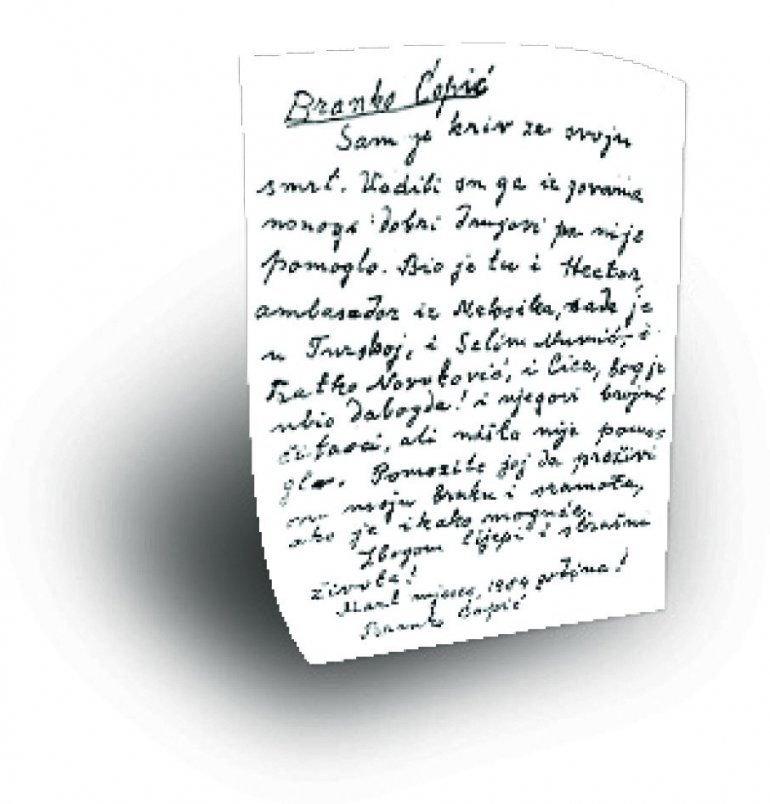 Branko Ćopić
Sam je kriv za svoju
smrt. Vadili su ga iz govana
mnogi dobri drugovi pa nije
pomoglo. Bio je tu i Hector,
ambasador iz Meksika, sada je
u Turskoj, i Selim Numić, i
Ratko Novaković, i Cica, bog je
ubio dabogda! i njegovi brojni
čitaoci, ali ništa nije pomo
glo. Pomozite joj da preživi
ovu moju bruku i sramotu,
ako je ikako moguće.
Zbogom lijepi i strašni
živote!
Mart mjesec, 1984 godina!
Branko Ćopić